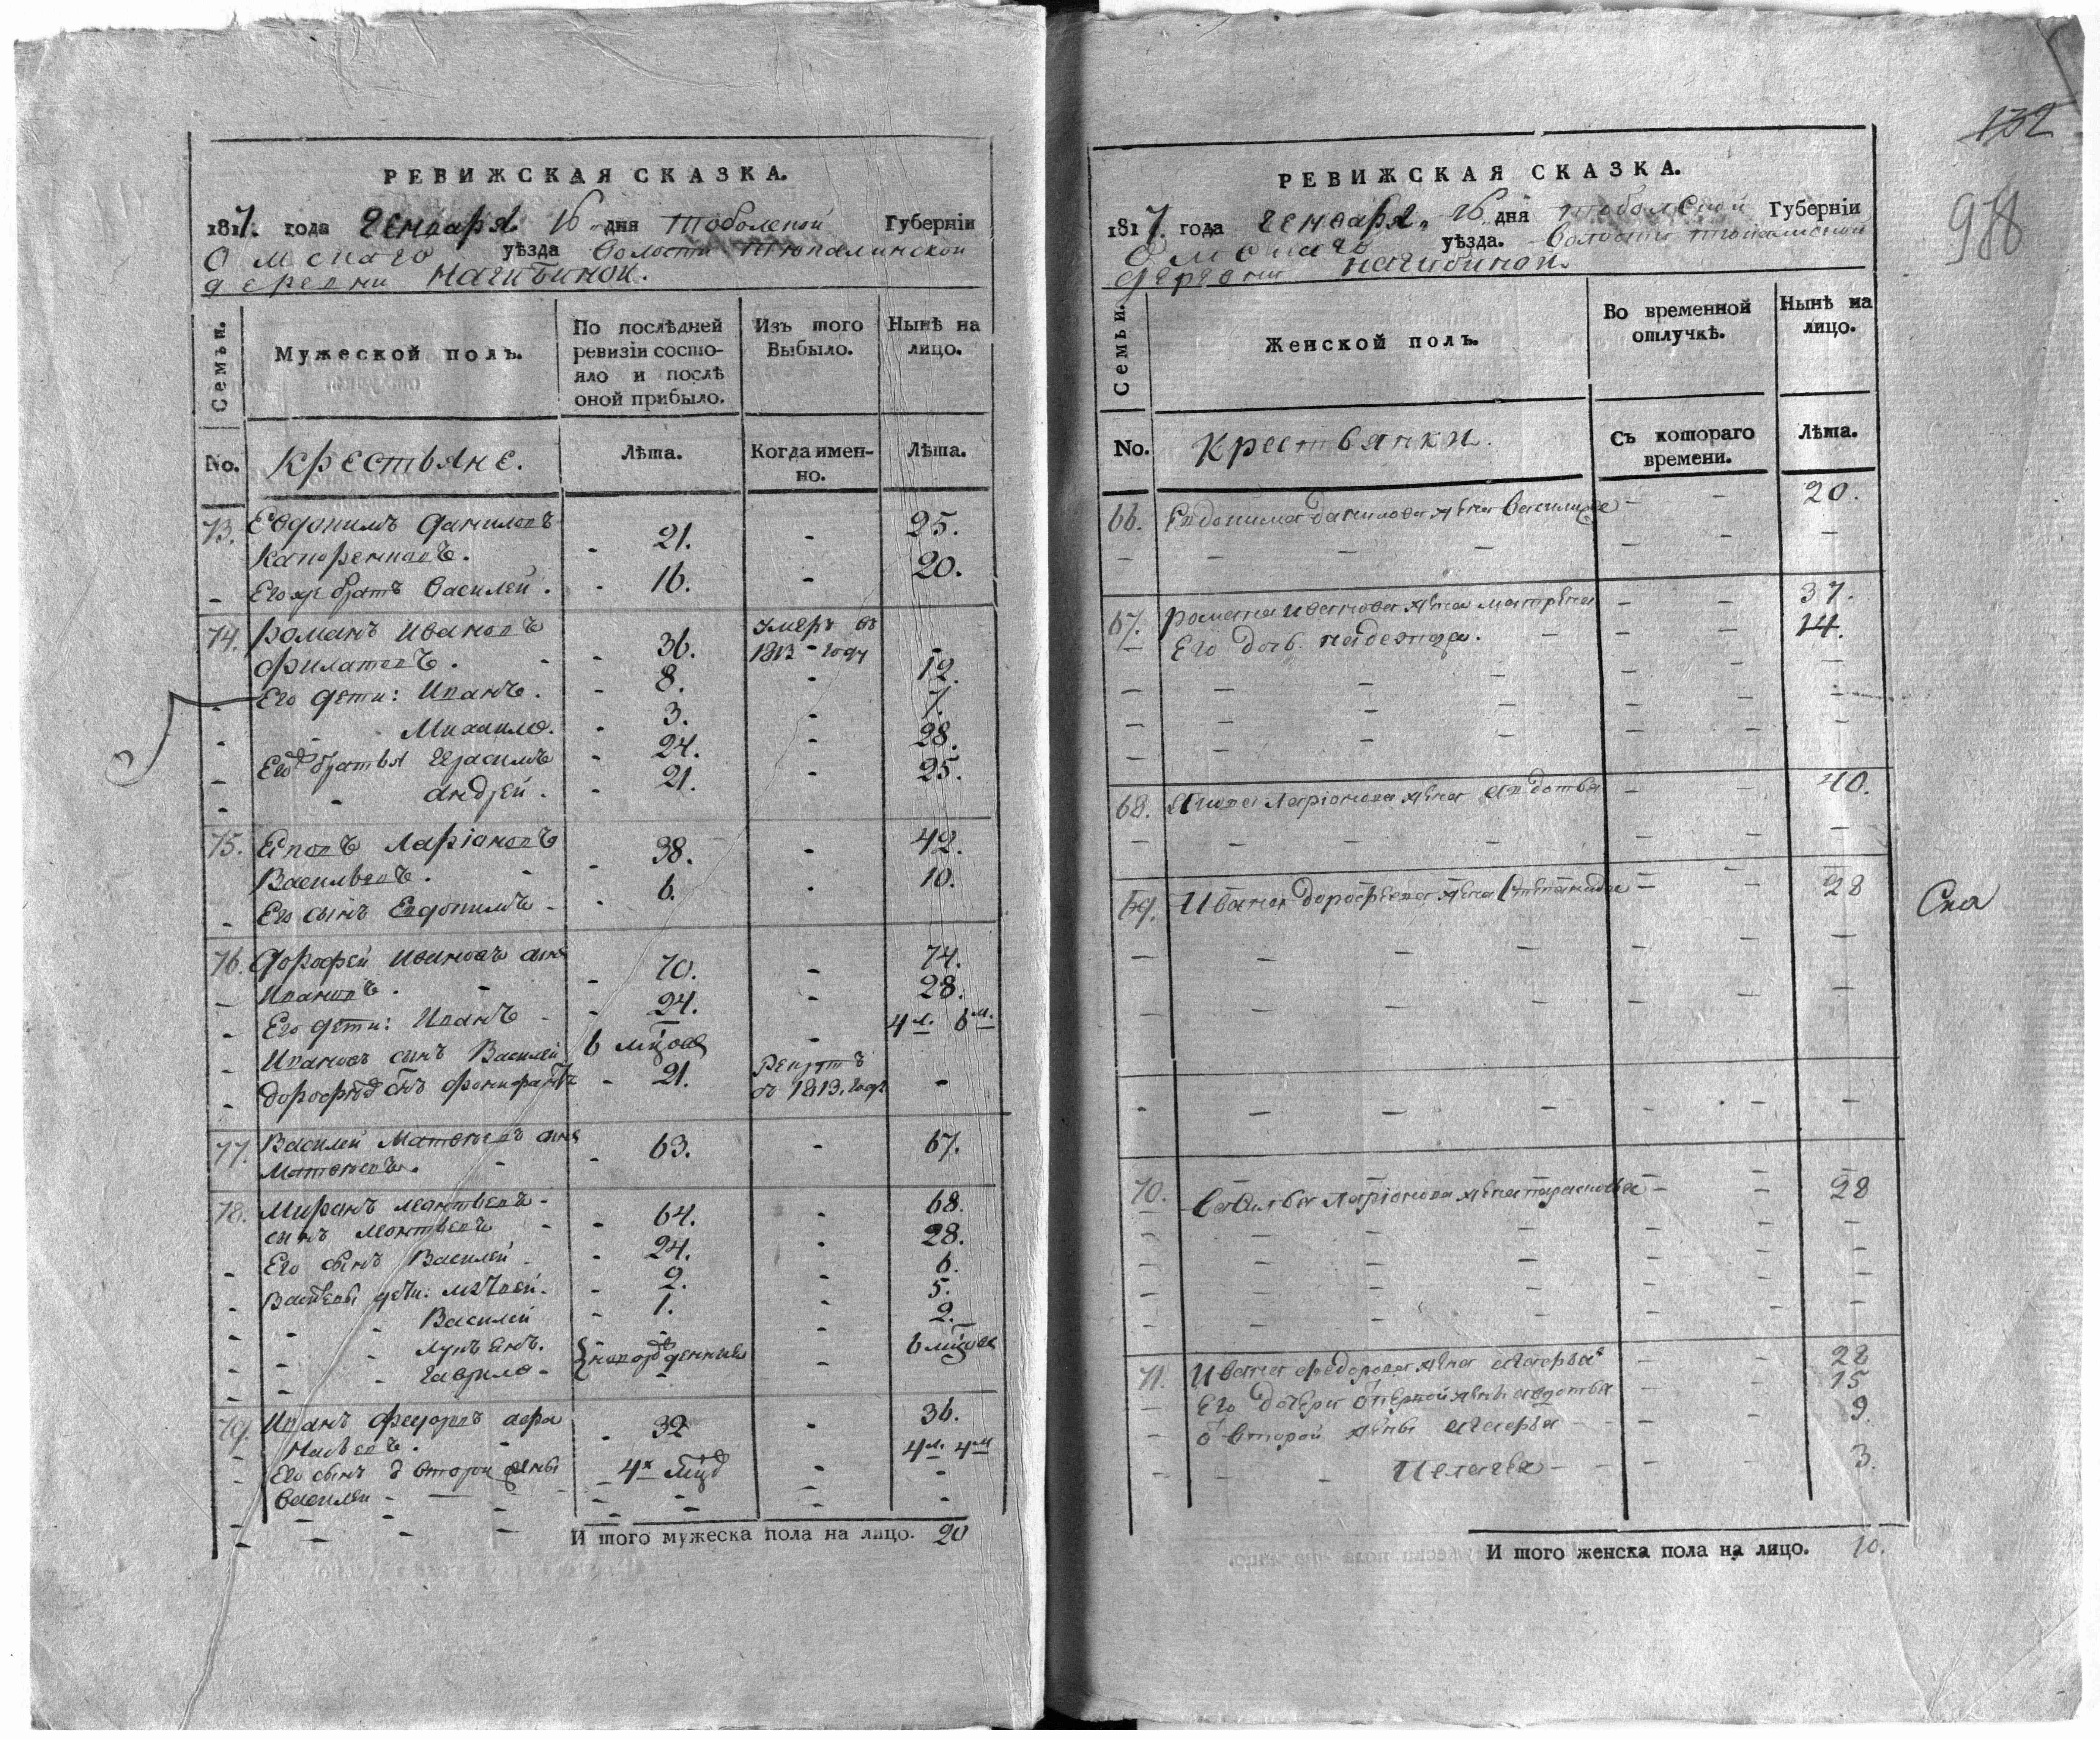 РЕВИЖСКАЯ СКАЗКА.
1817. года Генваря 16 дня Тобольской Губерніи
Омскаго уѣзда Волости Тюкалинской
деревни Нагибиной.
Семьи.
Мужеской полъ.
По послѣдней ревизіи состояло и послѣ оной прибыло.
Изъ того Выбыло.
Нынѣ на лицо.
No. Крестьяне.
Лѣта.
Когда именно.
Лѣта.
73. Евдокимъ Даниловъ
21. - 25.
Его же братъ Василей. - 16. - 20.
74. Романъ Ивановъ
Филатовъ. - 36. Умеръ въ 1813 году -
Его дети: Иванъ. - 8. - 12.
Михайло. - 3. - 7.
Его братья Герасимъ - 24. - 28.
Андрей. - 21. - 25.
75. Ларіоновъ
Васильевъ. - 38. - 42.
Его сынъ Евдокимъ - 6. - 10.
76. Дорофей Ивановъ сынъ
Ивановъ. - 70. - 74.
Его дети: Иванъ - 24. - 28.
Ивановъ сынъ Василей 6 - 4 л. 6 м.
- 21. Рекрутъ въ 1813. году -
77. Василей Матвеевъ сынъ
Матвеевъ. - 63. - 67.
78. Миронъ Леонтьевъ
сынъ Леонтьевъ - 64. - 68.
Его сынъ Василей - 24. - 28.
дѣти: - 2. - 6.
Василей - 1. - 5.
- 2.
Гаврило - 6
79. Иванъ Федоровъ
32 - 36.
Его сынъ
Василей - 4 - 4 л. 4 м
И того мужеска пола на лицо. 20
132
988
РЕВИЖСКАЯ СКАЗКА.
1817. года Генваря 16 дня Тобольской Губерніи
Омскаго уѣзда. Волости Тюкалинской
деревни Нагибиной.
Семьи.
Женской полъ.
Во временной отлучкѣ.
Нынѣ на лицо.
No. Крестьянки.
Съ котораго времени.
Лѣта.
66. Евдокима Данилова жена Василиса - - 20.
67. Романа Иванова жена Матрена - - 37.
Его дочь Надежда. - - 14.
68. Ларіонова жена Авдотья - - 40.
69. Ивана Дорофеева жена Степанида - - 28
Ска
70. Василья Ларіонова жена Парасковья - - 28
71. Ивана Федорова жена Марья - - 28
Его дочери от первой жены Авдотья - - 15
От второй жены Марья - - 9.
Пелагея - - 3.
И того женска пола на лицо. 10.